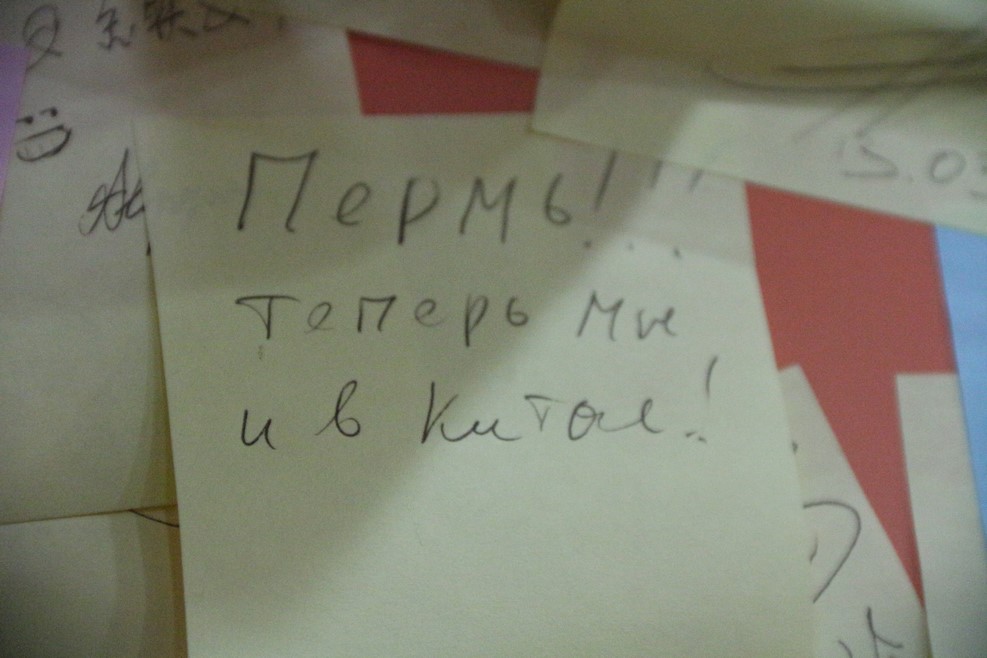 Пермь!!!
теперь мы
и в Китае!
15.03